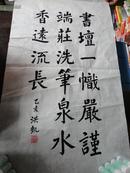 書壇一幟嚴謹
端莊洗筆泉水
香遠流長
乙亥洪凱